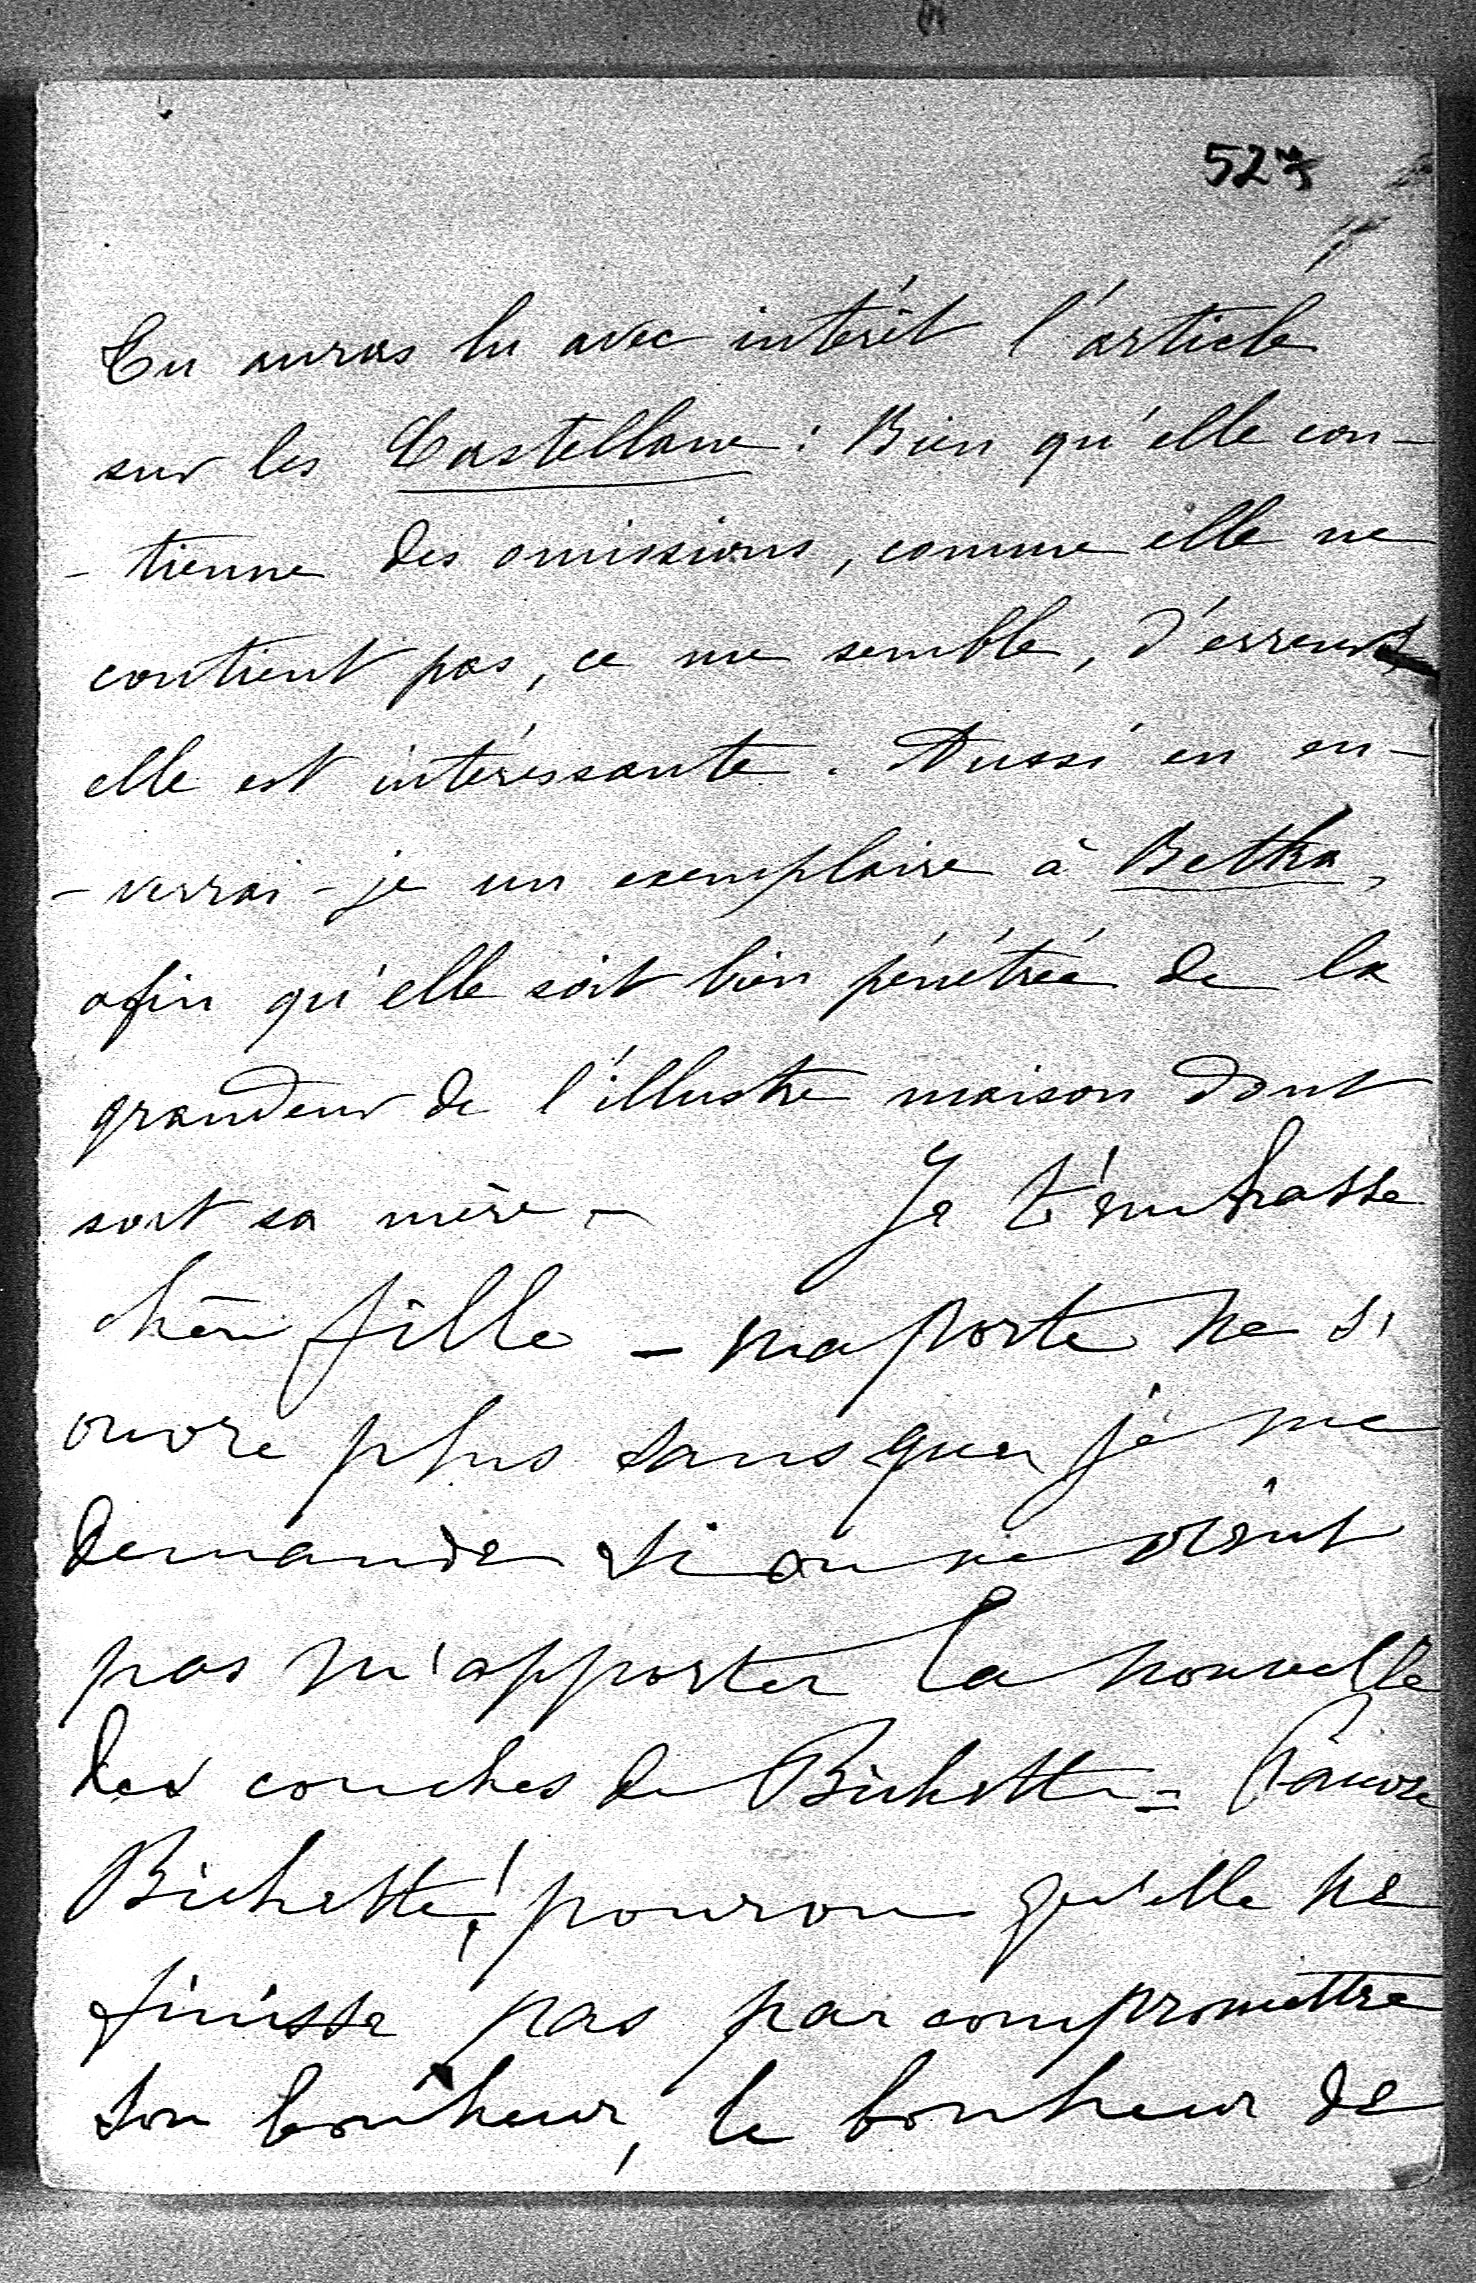 Tu auras lu avec intérêt l'article
sur les Castellane : Bien qu'elle con-
- tienne des omissions, comme elle ne
contient pas, ce me semble, d'erreurs
elle est intéressante. Aussi en en-
- verrai-je un exemplaire à Betka,
afin qu'elle soit bien pénétrée de la
grandeur de l'illustre maison dont
sort sa mère - Je t'embrasse
chère fille - ma porte ne s'
ouvre plus sans que je me
demande si on ne vient
pas m'apporter la nouvelle
des couches de Bichette = Pauvre
Bichette! pourvu qu'elle ne
finisse pas par compromettre
son bonheur, le bonheur de